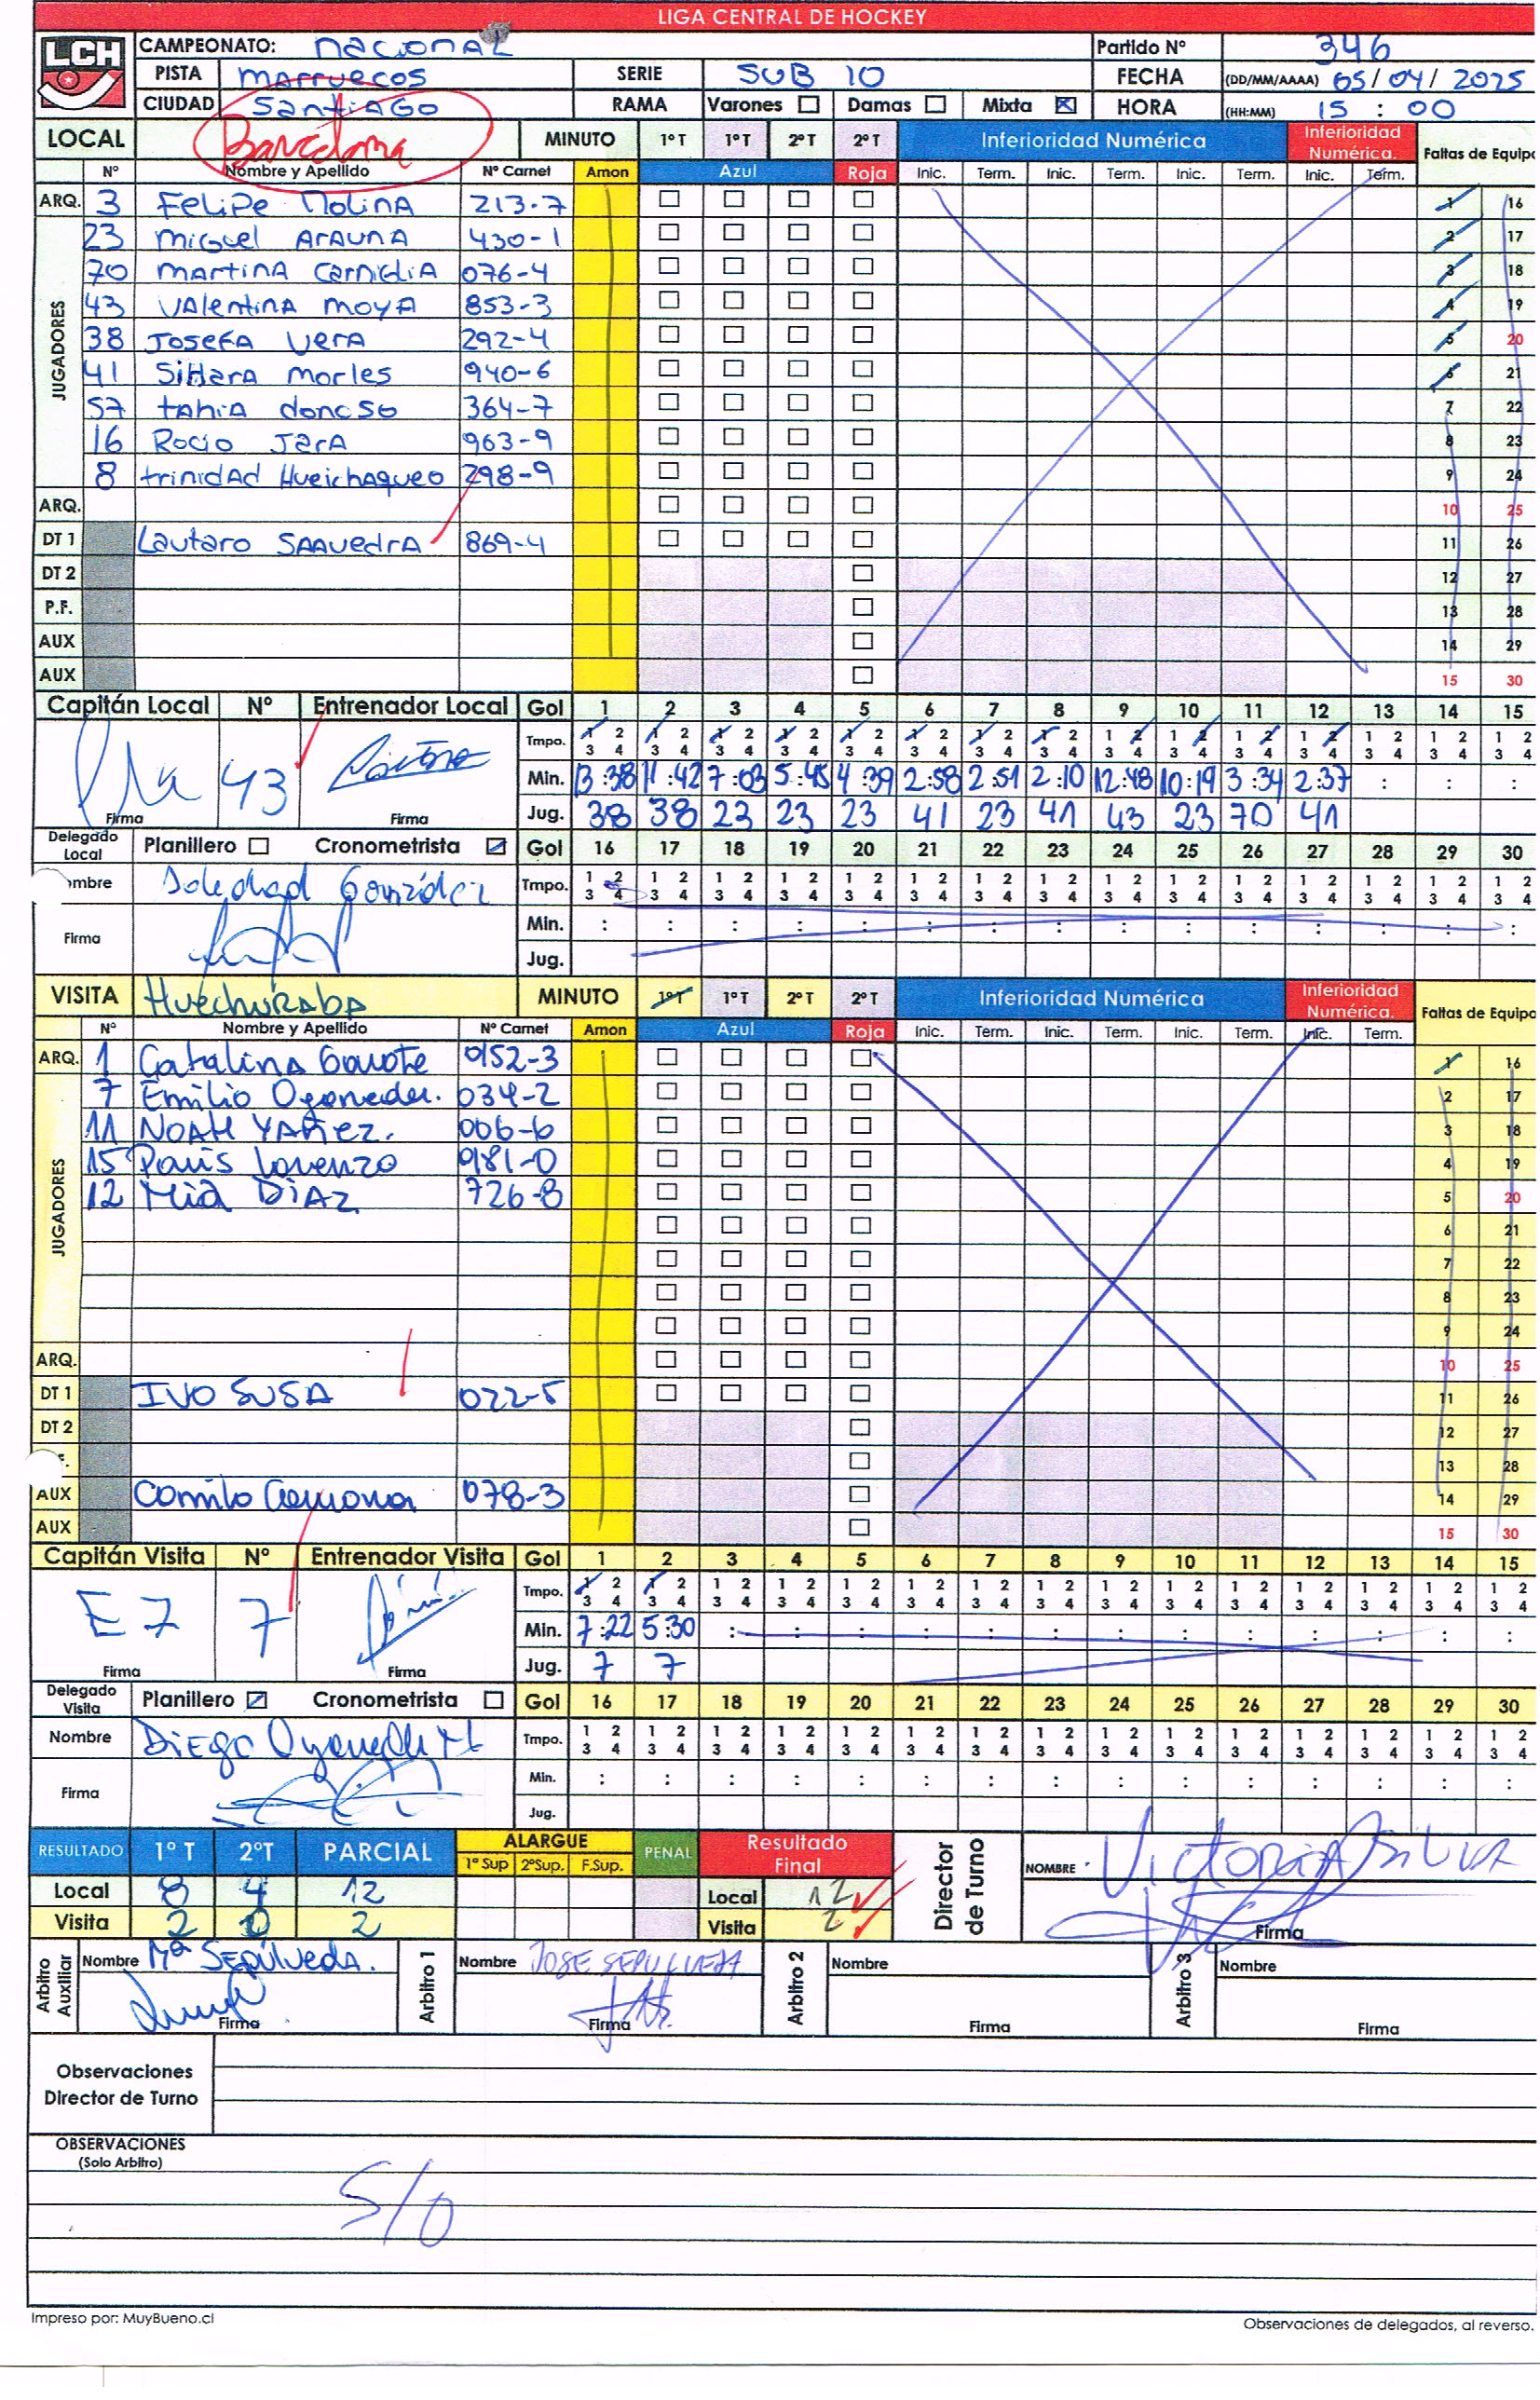 LIGA CENTRAL DE HOCKEY
LCH
CAMPEONATO: nacional Partido Nº 346
PISTA marruecos SERIE SUB 10 FECHA (DD/MM/AAAA) 05/04/2025
CIUDAD Santiago RAMA Varones Damas Mixta HORA (HH:MM) 15:00
LOCAL Barcelona MINUTO 1º T 1º T 2º T 2º T Inferioridad Numérica Inferioridad Numérica. Faltas de Equipo
Nº Nombre y Apellido Nº Carnet Amon Azul Roja Inic. Term. Inic. Term. Inic. Term. Inic. Term.
ARQ. 3 Felipe Molina 213-7 1 16
JUGADORES
23 Miguel Arauna 430-1 2 17
70 martina Carniglia 076-4 3 18
43 Valentina moya 853-3 4 19
38 Josefa Vera 292-4 5 20
41 Sihara morles 940-6 6 21
57 tahia donoso 364-7 7 22
16 Rocio Jara 963-9 8 23
8 trinidad Hueichaqueo 298-9 9 24
ARQ. 10 25
DT 1 Lautaro Saavedra 869-4 11 26
DT 2 12 27
P.F. 13 28
AUX 14 29
AUX 15 30
Capitán Local Nº Entrenador Local Gol 1 2 3 4 5 6 7 8 9 10 11 12 13 14 15
Tmpo. 1 2 1 2 1 2 1 2 1 2 1 2 1 2 1 2 1 2 1 2 1 2 1 2 1 2 1 2 1 2
3 4 3 4 3 4 3 4 3 4 3 4 3 4 3 4 3 4 3 4 3 4 3 4 3 4 3 4 3 4
43 Min. 13:38 11:42 7:03 5:45 4:39 2:58 2:51 2:10 12:48 10:19 3:34 2:37 : : :
Firma Firma Jug. 38 38 23 23 23 41 23 41 43 23 70 41
Delegado Local Planillero Cronometrista Gol 16 17 18 19 20 21 22 23 24 25 26 27 28 29 30
ombre Soledad González Tmpo. 1 2 1 2 1 2 1 2 1 2 1 2 1 2 1 2 1 2 1 2 1 2 1 2 1 2 1 2 1 2
3 4 3 4 3 4 3 4 3 4 3 4 3 4 3 4 3 4 3 4 3 4 3 4 3 4 3 4 3 4
Firma Min. : : : : : : : : : : : : : : :
Jug.
VISITA Huechuraba MINUTO 1º T 1º T 2º T 2º T Inferioridad Numérica Inferioridad Numérica. Faltas de Equipo
Nº Nombre y Apellido Nº Carnet Amon Azul Roja Inic. Term. Inic. Term. Inic. Term. Inic. Term.
ARQ. 1 Catalina Gavote 0152-3 1 16
JUGADORES
7 Emilio Oyaneder. 034-2 2 17
11 Noah Yañez. 006-6 3 18
15 Paris Lorenzo 981-0 4 19
12 Mia Diaz 726-8 5 20
6 21
7 22
8 23
9 24
ARQ. 10 25
DT 1 IVO SUSA 022-5 11 26
DT 2 12 27
13 28
AUX Camilo Carmona 078-3 14 29
AUX 15 30
Capitán Visita Nº Entrenador Visita Gol 1 2 3 4 5 6 7 8 9 10 11 12 13 14 15
Tmpo. 1 2 1 2 1 2 1 2 1 2 1 2 1 2 1 2 1 2 1 2 1 2 1 2 1 2 1 2 1 2
3 4 3 4 3 4 3 4 3 4 3 4 3 4 3 4 3 4 3 4 3 4 3 4 3 4 3 4 3 4
E 7 7 Min. 7:22 5:30 : : : : : : : : : : : : :
Firma Firma Jug. 7 7
Delegado Visita Planillero Cronometrista Gol 16 17 18 19 20 21 22 23 24 25 26 27 28 29 30
Nombre Diego Tmpo. 1 2 1 2 1 2 1 2 1 2 1 2 1 2 1 2 1 2 1 2 1 2 1 2 1 2 1 2 1 2
3 4 3 4 3 4 3 4 3 4 3 4 3 4 3 4 3 4 3 4 3 4 3 4 3 4 3 4 3 4
Firma Min. : : : : : : : : : : : : : : :
Jug.
RESULTADO 1º T 2ºT PARCIAL ALARGUE 1º Sup 2ºSup. F.Sup. PENAL Resultado Final Director de Turno NOMBRE Victoria Silva
Local 8 4 12 Local 12
Visita 2 0 2 Visita 2 Firma
Arbitro Auxiliar Nombre Mª Sepúlveda. Arbitro 1 Nombre JOSE SEPULVEDA Arbitro 2 Nombre Arbitro 3 Nombre
Firma Firma Firma Firma
Observaciones
Director de Turno
OBSERVACIONES
(Solo Arbitro)
S/O
Impreso por: MuyBueno.cl Observaciones de delegados, al reverso.